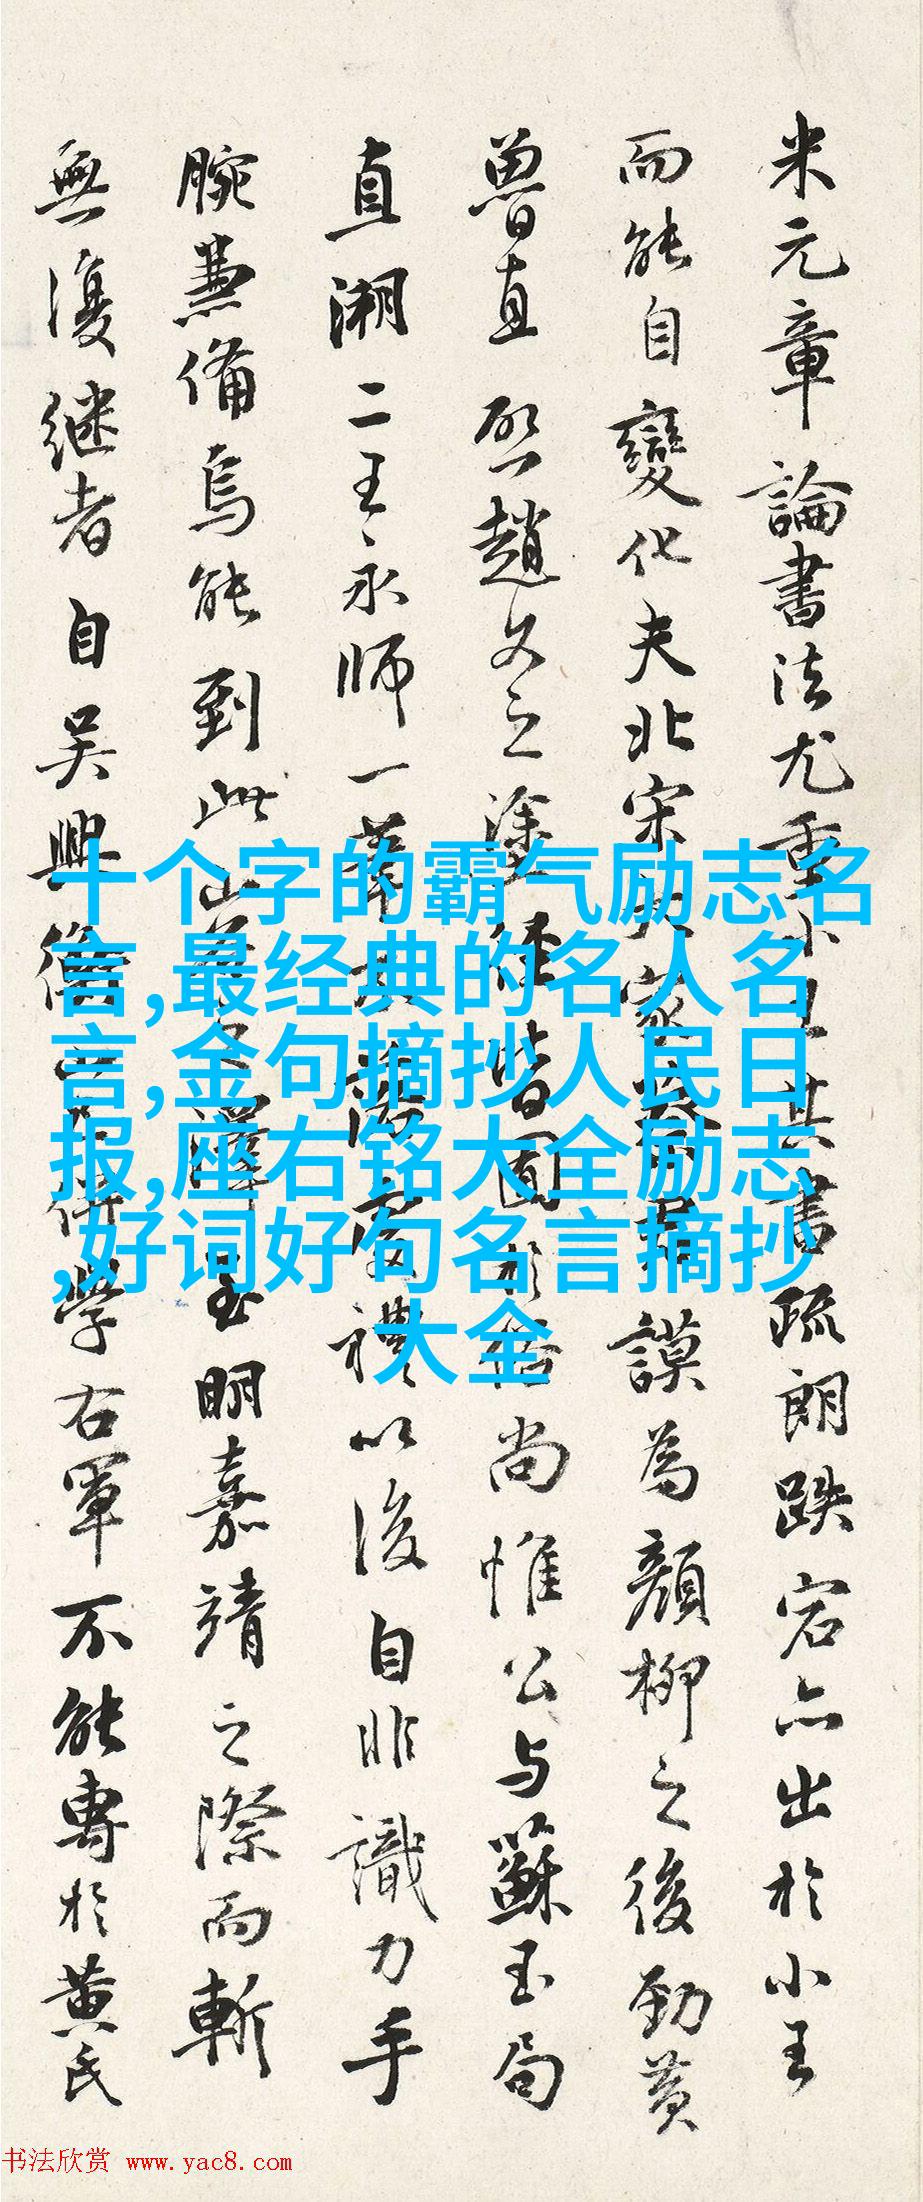 米元章論書法尤重小王其書疏朗跌宕亦出於小王
而能自變化夫北宋家蔡君謨為顏柳之後勁黃
魯直啓趙文之塗徑皆囿於俗尚惟公与蘇玉局
直溯二王永師一虔禮以後自非識力手
腕兼備烏能到此山至明嘉靖之際而斬
無復继者自吳興學右軍不能專於黃氏
十个字的霸气励志名
言,最经典的名人名
言,金句摘抄人民日
报,座右铭大全励志
,好词好句名言摘抄
大全
书法欣赏 www.yac8.com